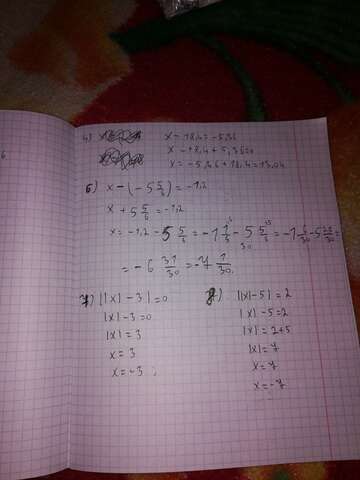 4) x - 18,4 = -5,36
x - 18,4 + 5,36 = 0
x = -5,36 + 18,4 = 13,04
6) x - (-5 5/6) = -1,2
x + 5 5/6 = -1,2
x = -1,2 - 5 5/6 = -1 1/5 - 5 5/6 = -1 6/30 - 5 25/30 =
= -6 31/30 = -7 1/30
7) ||x| - 3| = 0
|x| - 3 = 0
|x| = 3
x = 3
x = -3
8) ||x| - 5| = 2
|x| - 5 = 2
|x| = 2 + 5
|x| = 7
x = 7
x = -7